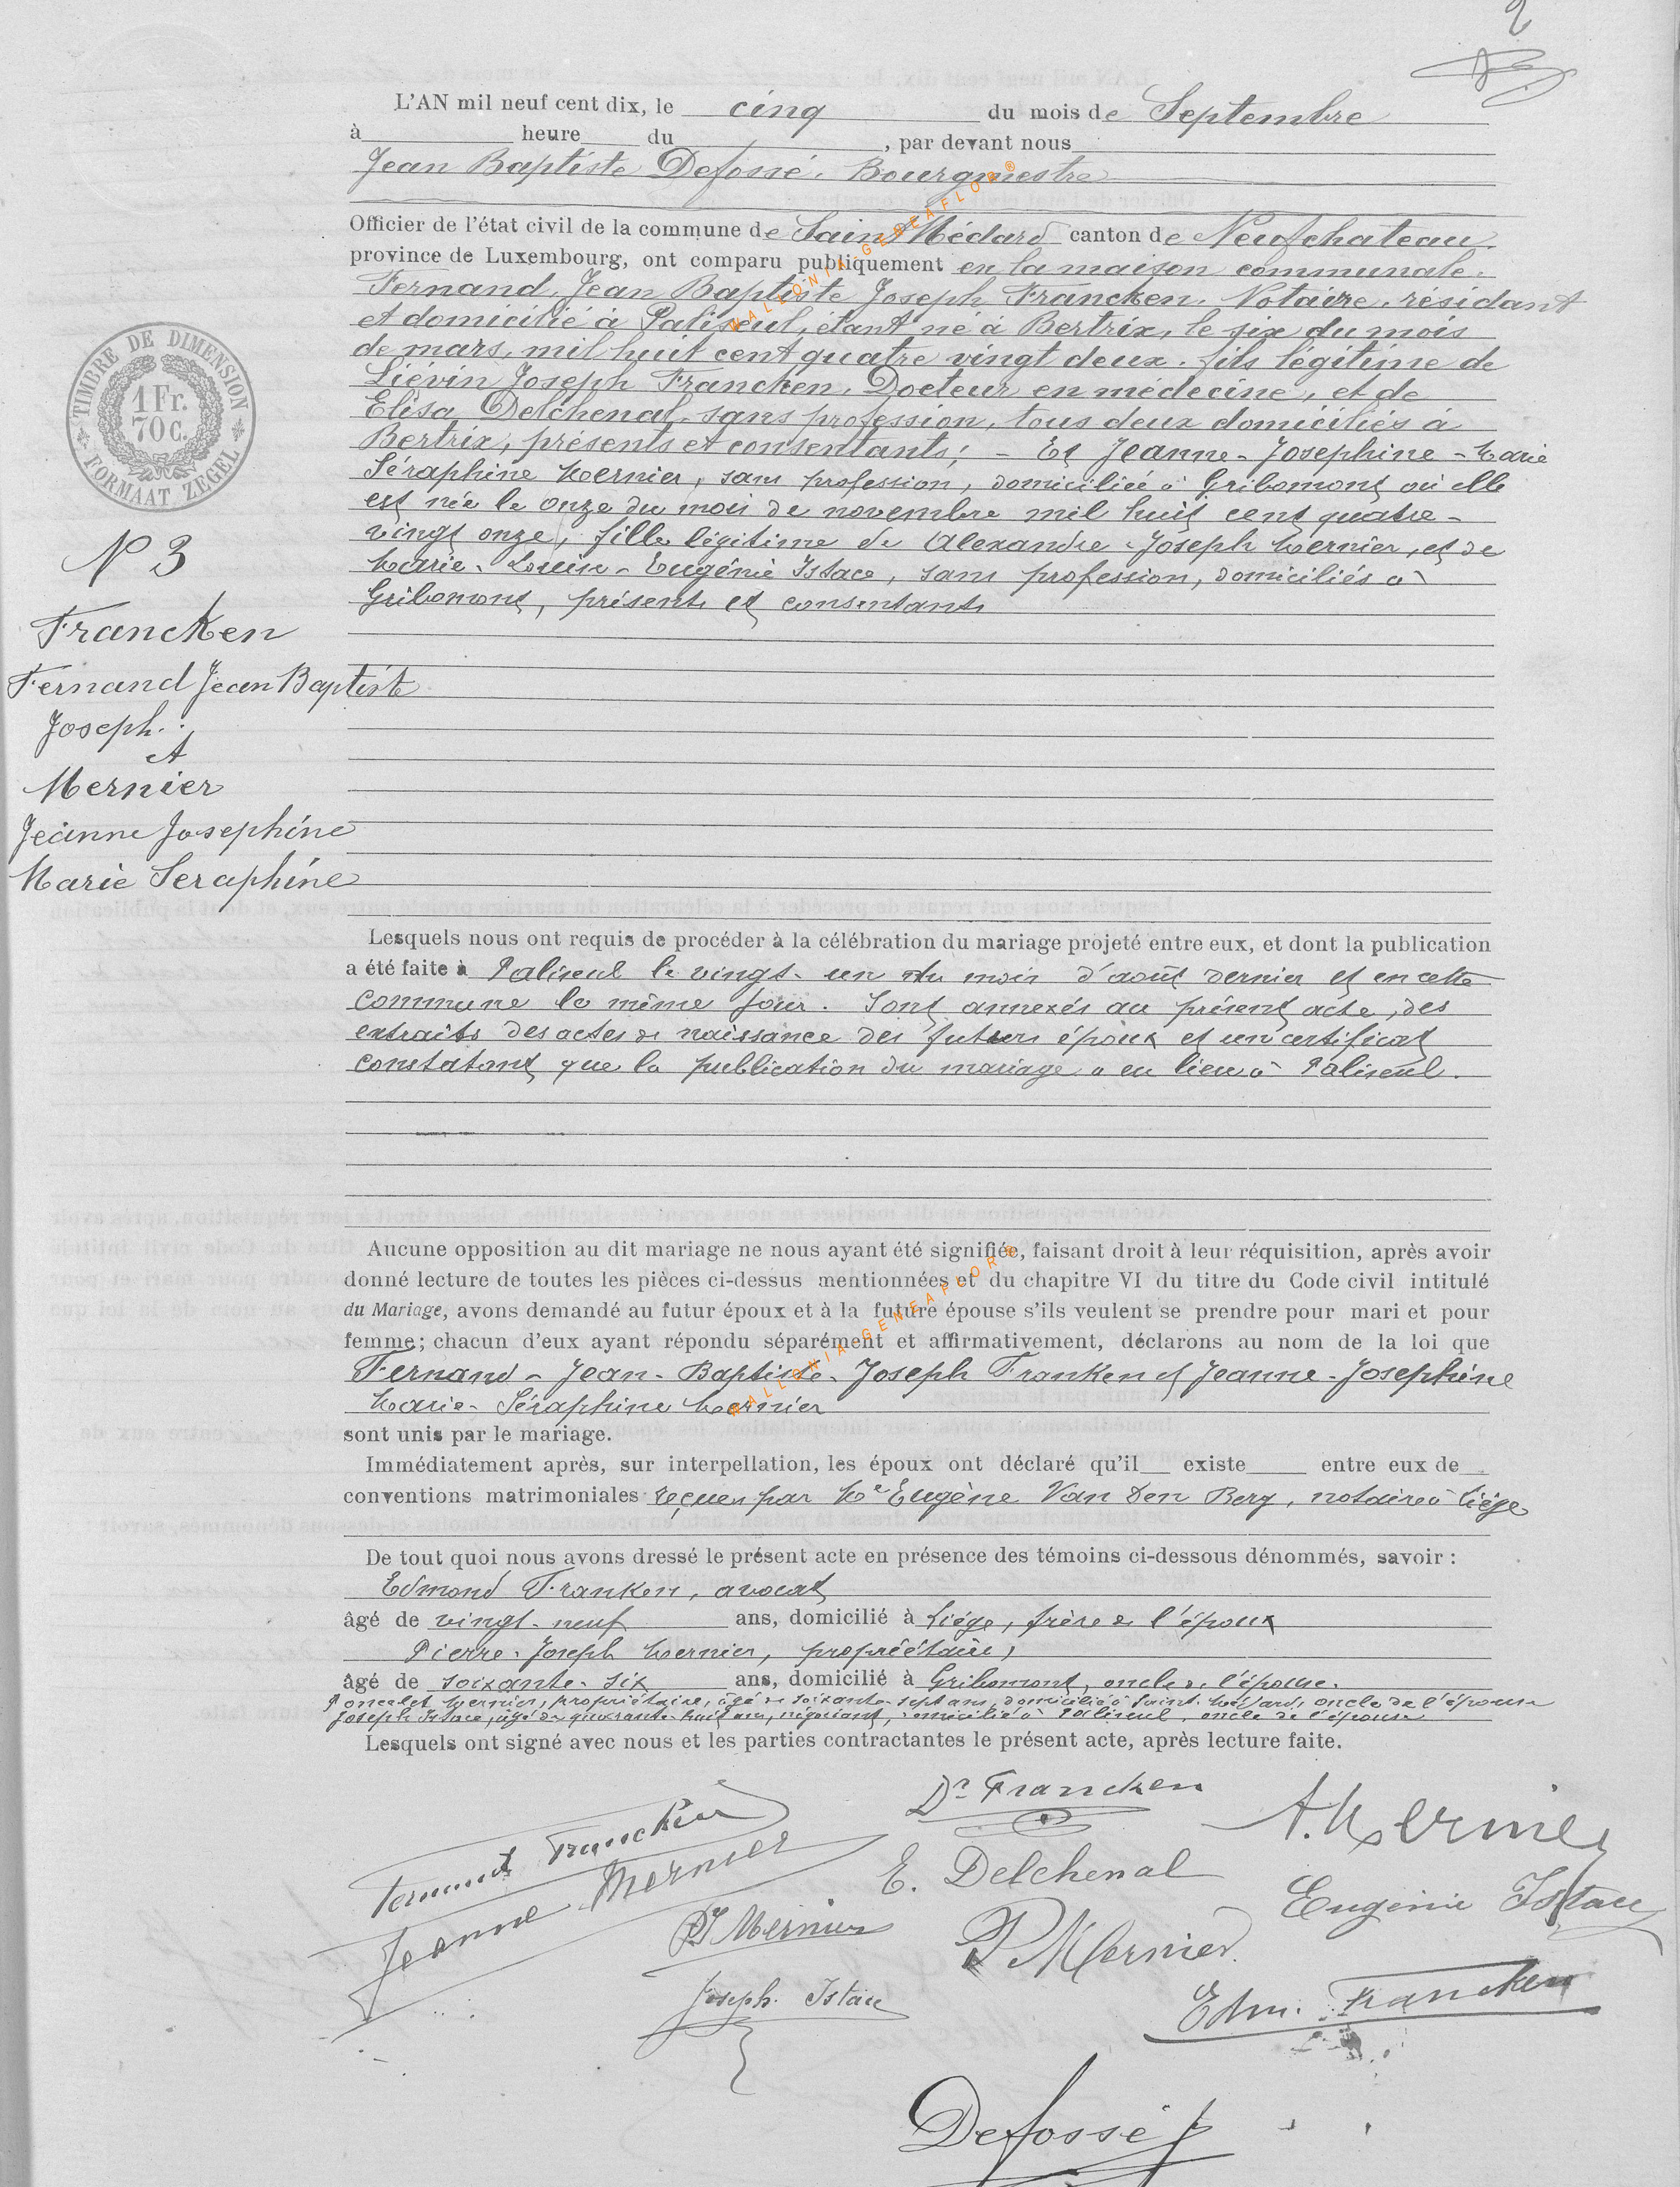 2
L'AN mil neuf cent dix, le cinq du mois de Septembre
à heure du , par devant nous
Jean Baptiste Defossé. Bourgmestre
Officier de l'état civil de la commune de Saint Médard canton de Neufchateau.
province de Luxembourg, ont comparu publiquement en la maison communale.
Fernand, Jean Baptiste Joseph Francken. Notaire, résidant
et domicilié à Paliseul, étant né à Bertrix, le six du mois
de mars, mil huit cent quatre vingt deux. fils légitime de
Liévin Joseph Francken, Docteur en médecine, et de
Elisa Delchenal, sans profession, tous deux domiciliés à
Bertrix, présents et consentants; - Et Jeanne - Josephine - Marie
Séraphine Mernier, sans profession, domiciliée à Gribomont où elle
est née le onze du mois de novembre mil huit cent quatre-
vingt onze, fille légitime de Alexandre-Joseph Mernier, et de
Marie-Louise-Eugénie Istace, sans profession, domiciliés à
Gribomont, présents et consentants
TIMBRE DE DIMENSION
1 Fr.
70 C.
FORMAAT ZEGEL
N 3
Francken
Fernand Jean Baptiste
Joseph.
et
Mernier
Jeanne Josephine
Marie Seraphine
Lesquels nous ont requis de procéder à la célébration du mariage projeté entre eux, et dont la publication
a été faite à Paliseul le vingt-un du mois d'août dernier et en cette
commune le même jour. Sont annexés au présent acte, des
extraits des actes de naissance des futurs époux et un certificat
constatant que la publication du mariage a eu lieu à Paliseul.
Aucune opposition au dit mariage ne nous ayant été signifiée, faisant droit à leur réquisition, après avoir
donné lecture de toutes les pièces ci-dessus mentionnées et du chapitre VI du titre du Code civil intitulé
du Mariage, avons demandé au futur époux et à la future épouse s'ils veulent se prendre pour mari et pour
femme; chacun d'eux ayant répondu séparément et affirmativement, déclarons au nom de la loi que
Fernand - Jean - Baptiste - Joseph Franken et Jeanne - Josephine
Marie - Séraphine Mernier
sont unis par le mariage.
Immédiatement après, sur interpellation, les époux ont déclaré qu'il existe entre eux de
conventions matrimoniales reçues par Me Eugène Van Den Berg, notaire à Liége
De tout quoi nous avons dressé le présent acte en présence des témoins ci-dessous dénommés, savoir :
Edmond Franken, avocat
âgé de vingt-neuf ans, domicilié à Liége, frère de l'époux
Pierre-Joseph Mernier, propriétaire,
âgé de soixante-six ans, domicilié à Gribomont, oncle de l'épouse.
Poncelet Mernier, propriétaire, âgé de soixante-sept ans, domicilié à Saint-Médard, oncle de l'épouse
Joseph Istace, âgé de quarante-huit ans, négociant, domicilié à Paliseul, oncle de l'épouse
Lesquels ont signé avec nous et les parties contractantes le présent acte, après lecture faite.
Dr Francken
A. Mernier
Fernand Francken
Jeanne Mernier
E. Delchenal
Eugénie Istace
PJ Mernier
P Mernier
Joseph Istace
Edm. Francken
Defossé
WALLONIA GENEAFLOR ®
WALLONIA GENEAFLOR ®